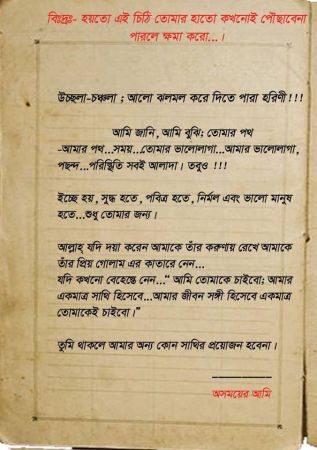 বিঃদ্রঃ- হয়তো এই চিঠি তোমার হাতো কখনোই পৌছাবেনা
পারলে ক্ষমা করো...।
উচ্ছলা-চঞ্চলা ; আলো ঝলমল করে দিতে পারা হরিণী!!!
আমি জানি , আমি বুঝি; তোমার পথ
-আমার পথ...সময়...তোমার ভালোলাগা...আমার ভালোলাগা,
পছন্দ...পরিস্থিতি সবই আলাদা। তবুও !!!
ইচ্ছে হয় , সুদ্ধ হতে , পবিত্র হতে , নির্মল এবং ভালো মানুষ
হতে...শুধু তোমার জন্য।
আল্লাহ্ যদি দয়া করেন আমাকে তাঁর করুণায় রেখে আমাকে
তাঁর প্রিয় গোলাম এর কাতারে নেন...
যদি কখনো বেহেস্তে নেন...“ আমি তোমাকে চাইবো; আমার
একমাত্র সাথি হিসেবে...আমার জীবন সঙ্গী হিসেবে একমাত্র
তোমাকেই চাইবো।”
তুমি থাকলে আমার অন্য কোন সাথির প্রয়োজন হবেনা।
অসময়ের আমি